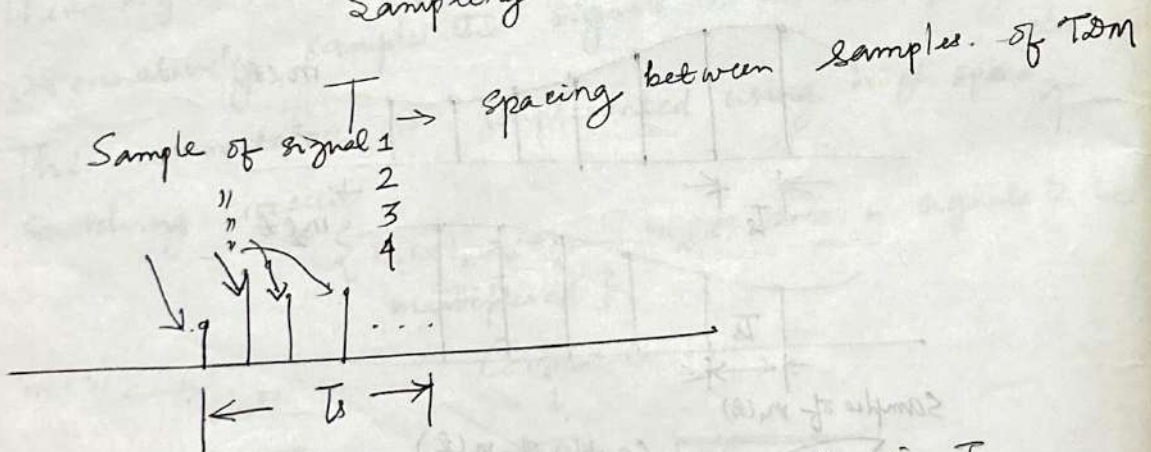 Sampling
T → spacing between samples. of TDM
Sample of signal 1
" 2
" 3
" 4
. . . .
← Ts →